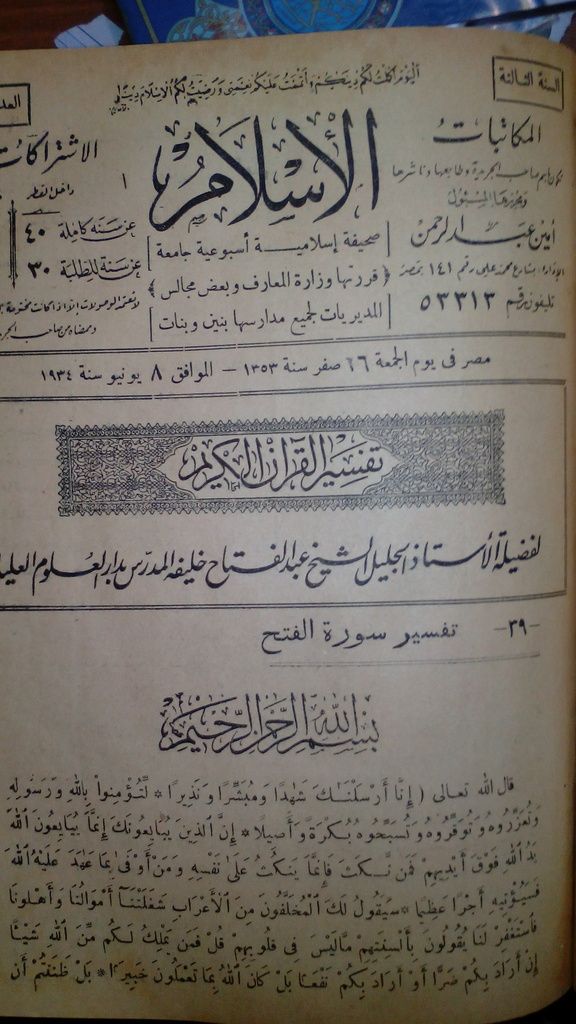 السنة الثالثة
العد
اليوم أكملت لكم دينكم وأتممت عليكم نعمتي ورضيت لكم الإسلام دينا
الإسلام
صحيفة إسلامية أسبوعية جامعة
( قررتها وزارة المعارف وبعض مجالس )
المديريات لجميع مدارسها بنين وبنات
المكاتبات
تكون باسم صاحب الجريدة وطابعها وناشرها
ومحررها المسئول
أمين عبد الرحمن
الإدارة بشارع محمد علي رقم ١٤١ بمصر
تليفون رقم ٥٣٣١٣
الاشتراكات
داخل القطر
٤٠ عن سنة كاملة
٣٠ عن سنة للطلبة
لا تعتمد الوصولات إلا إذا كانت مختومة
وممضاة من صاحب الجر
مصر فى يوم الجمعة ٢٦ صفر سنة ١٣٥٣ — الموافق ٨ يونيو سنة ١٩٣٤
تفسير القرآن الكريم
لفضيلة الأستاذ الجليل الشيخ عبد الفتاح خليفه المدرس بدار العلوم العليا
-٣٩- تفسير سورة الفتح
بسم الله الرحمن الرحيم
قال الله تعالى ( إِنَّا أَرْسَلْنَٰكَ شَٰهِدًا وَمُبَشِّرًا وَنَذِيرًا * لِّتُؤْمِنُوا بِاللهِ وَرَسُولِهِ
وَتُعَزِّرُوهُ وَتُوَقِّرُوهُ وَتُسَبِّحُوهُ بُكْرَةً وَأَصِيلًا * إِنَّ الَّذِينَ يُبَايِعُونَكَ إِنَّمَا يُبَايِعُونَ اللهَ
يَدُ اللهِ فَوْقَ أَيْدِيهِمْ فَمَن نَّكَثَ فَإِنَّمَا يَنكُثُ عَلَىٰ نَفْسِهِ وَمَنْ أَوْفَىٰ بِمَا عَٰهَدَ عَلَيْهُ اللهَ
فَسَيُؤْتِيهِ أَجْرًا عَظِيمًا * سَيَقُولُ لَكَ الْمُخَلَّفُونَ مِنَ الْأَعْرَابِ شَغَلَتْنَا أَمْوَالُنَا وَأَهْلُونَا
فَاسْتَغْفِرْ لَنَا يَقُولُونَ بِأَلْسِنَتِهِم مَّا لَيْسَ فِى قُلُوبِهِمْ قُلْ فَمَن يَمْلِكُ لَكُم مِّنَ اللهِ شَيْئًا
إِنْ أَرَادَ بِكُمْ ضَرًّا أَوْ أَرَادَ بِكُمْ نَفْعًا بَلْ كَانَ اللهُ بِمَا تَعْمَلُونَ خَبِيرًا * بَلْ ظَنَنتُمْ أَن